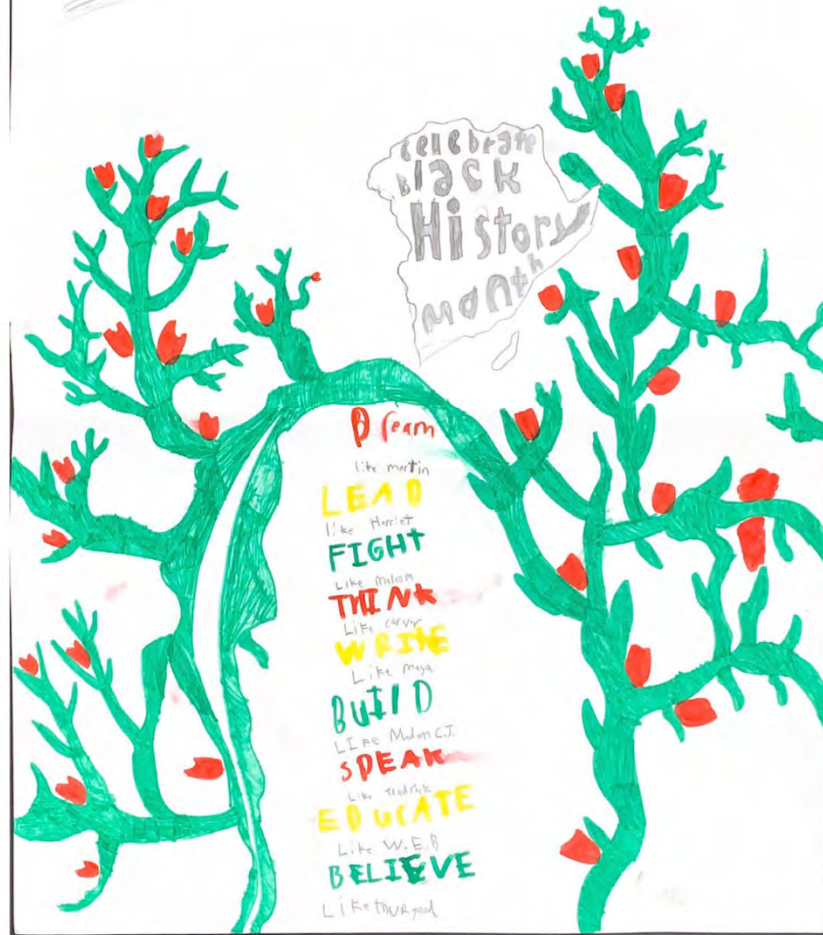 Celebrate
Black
History
month
Dream
like martin
LEAD
like Harriet
FIGHt
Like Malcom
THINK
Like carver
WRItE
Like Maya
BUILD
LIke Madam C.J.
SPEAK
Like fredrick
EDUCATE
Like W.E.B
BELIEVE
Like thurgood